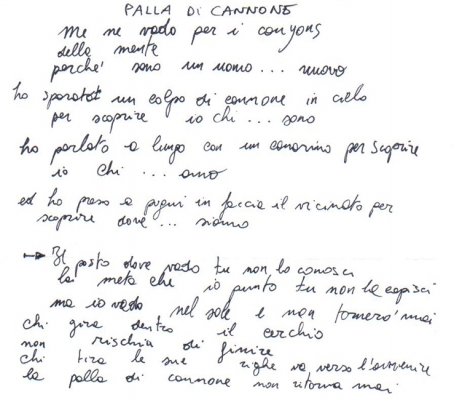 PALLA DI CANNONE
me ne vado per i canyons
della mente
perché sono un uomo... nuovo
ho sparato un colpo di cannone in cielo
per scoprire io chi... sono
ho parlato a lungo con un canarino per scoprire
io chi... amo
ed ho preso a pugni in faccia il vicinato per
scoprire dove... siamo
→ Il posto dove vado tu non lo conosci
la meta che io punto tu non la capisci
ma io vado nel sole e non tornerò mai
chi gira dentro il cerchio
non rischia di finire
chi tira le sue righe va verso l'avvenire
la palla di cannone non ritorna mai